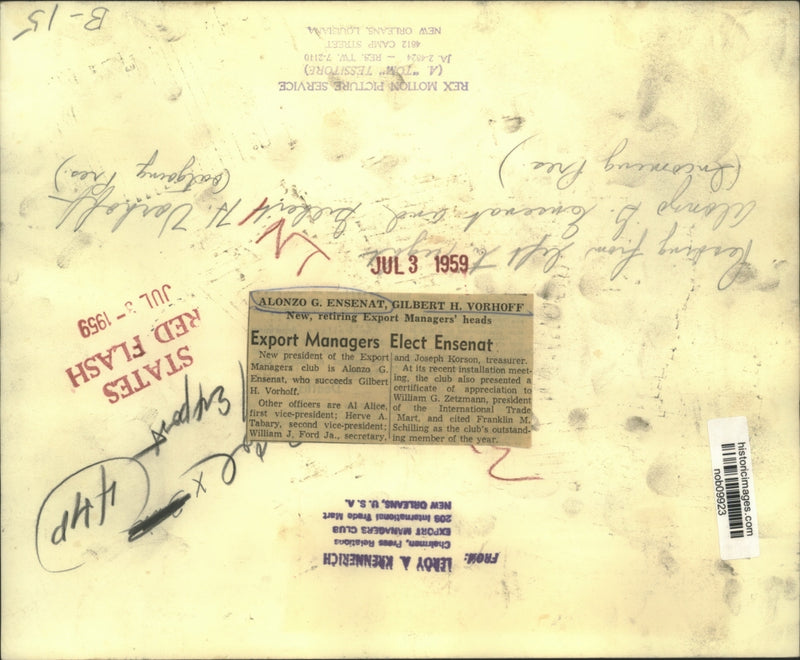 B-15
REX MOTION PICTURE SERVICE
(A. "TOM" TESSITORE)
JA 2-4824 — RES. TW. 7-2110
4612 CAMP STREET
NEW ORLEANS, LOUISIANA
Reading from left to right
Alonzo G. Ensenat and Gilbert H. Vorhoff
(Incoming Pres.) (outgoing Pres.)
JUL 3 1959
STATES
RED FLASH
JUL 3 - 1959
ALONZO G. ENSENAT, GILBERT H. VORHOFF
New, retiring Export Managers' heads
Export Managers Elect Ensenat
New president of the Export
Managers club is Alonzo G.
Ensenat, who succeeds Gilbert
H. Vorhoff.
Other officers are Al Alice,
first vice-president; Herve A.
Tabary, second vice-president;
William J. Ford Ja., secretary,
and Joseph Korson, treasurer.
At its recent installation meet-
ing, the club also presented a
certificate of appreciation to
William G. Zetzmann, president
of the International Trade
Mart, and cited Franklin M.
Schilling as the club's outstand-
ing member of the year.
Export
44P
FROM:
LEROY A KRENNERICH
Chairman, Press Relations
EXPORT MANAGERS CLUB
209 International Trade Mart
NEW ORLEANS, U. S. A.
historicimages.com
nob09923